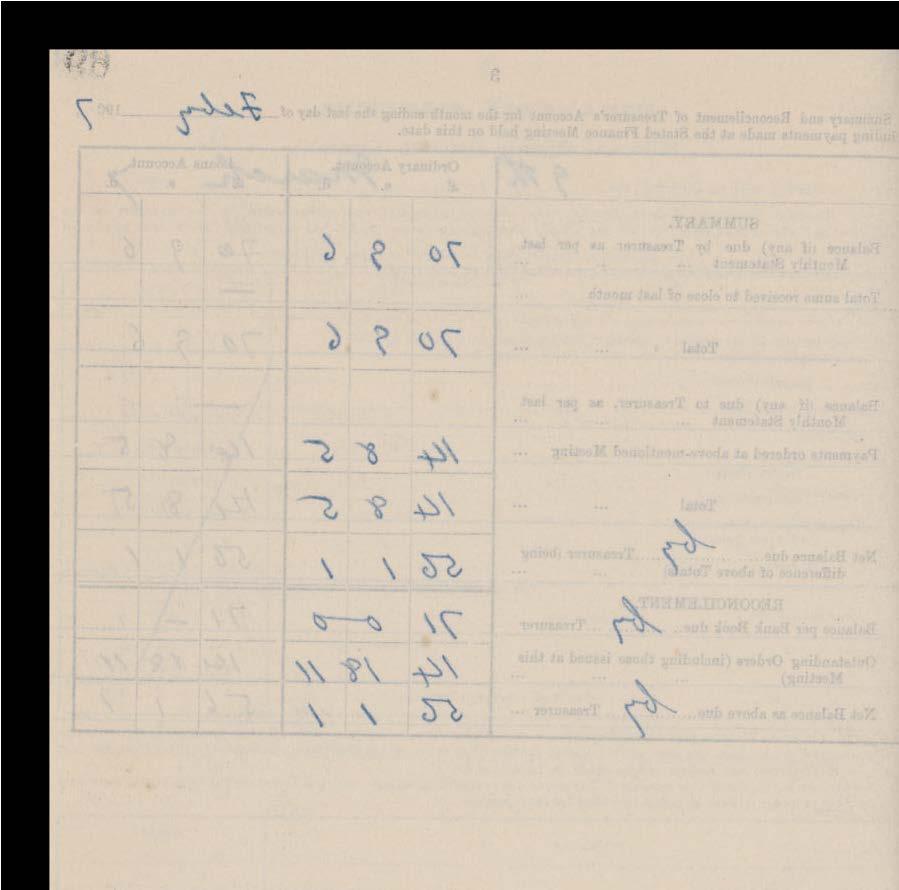 3
Summary and Reconcilement of Treasurer's Account for the month ending the last day of Feby 190 7
luding payments made at the Stated Finance Meeting held on this date.
Ordinary Account. Loans Account.
£ s. d. £ s. d.
SUMMARY.
Balance (if any) due by Treasurer as per last
Monthly Statement ... ... ... 70 9 6
Total sums received to close of last month ...
Total ... ... 70 9 6
Balance (if any) due to Treasurer, as per last
Monthly Statement ... ... ...
Payments ordered at above-mentioned Meeting ... 14 8 5
Total ... ... 14 8 5
Net Balance due by Treasurer (being
difference of above Totals) ... ... 56 1 1
RECONCILEMENT.
Balance per Bank Book due by Treasurer 71 0 0
Outstanding Orders (including those issued at this
Meeting) ... ... ... 14 18 11
Net Balance as above due by Treasurer ... 56 1 1